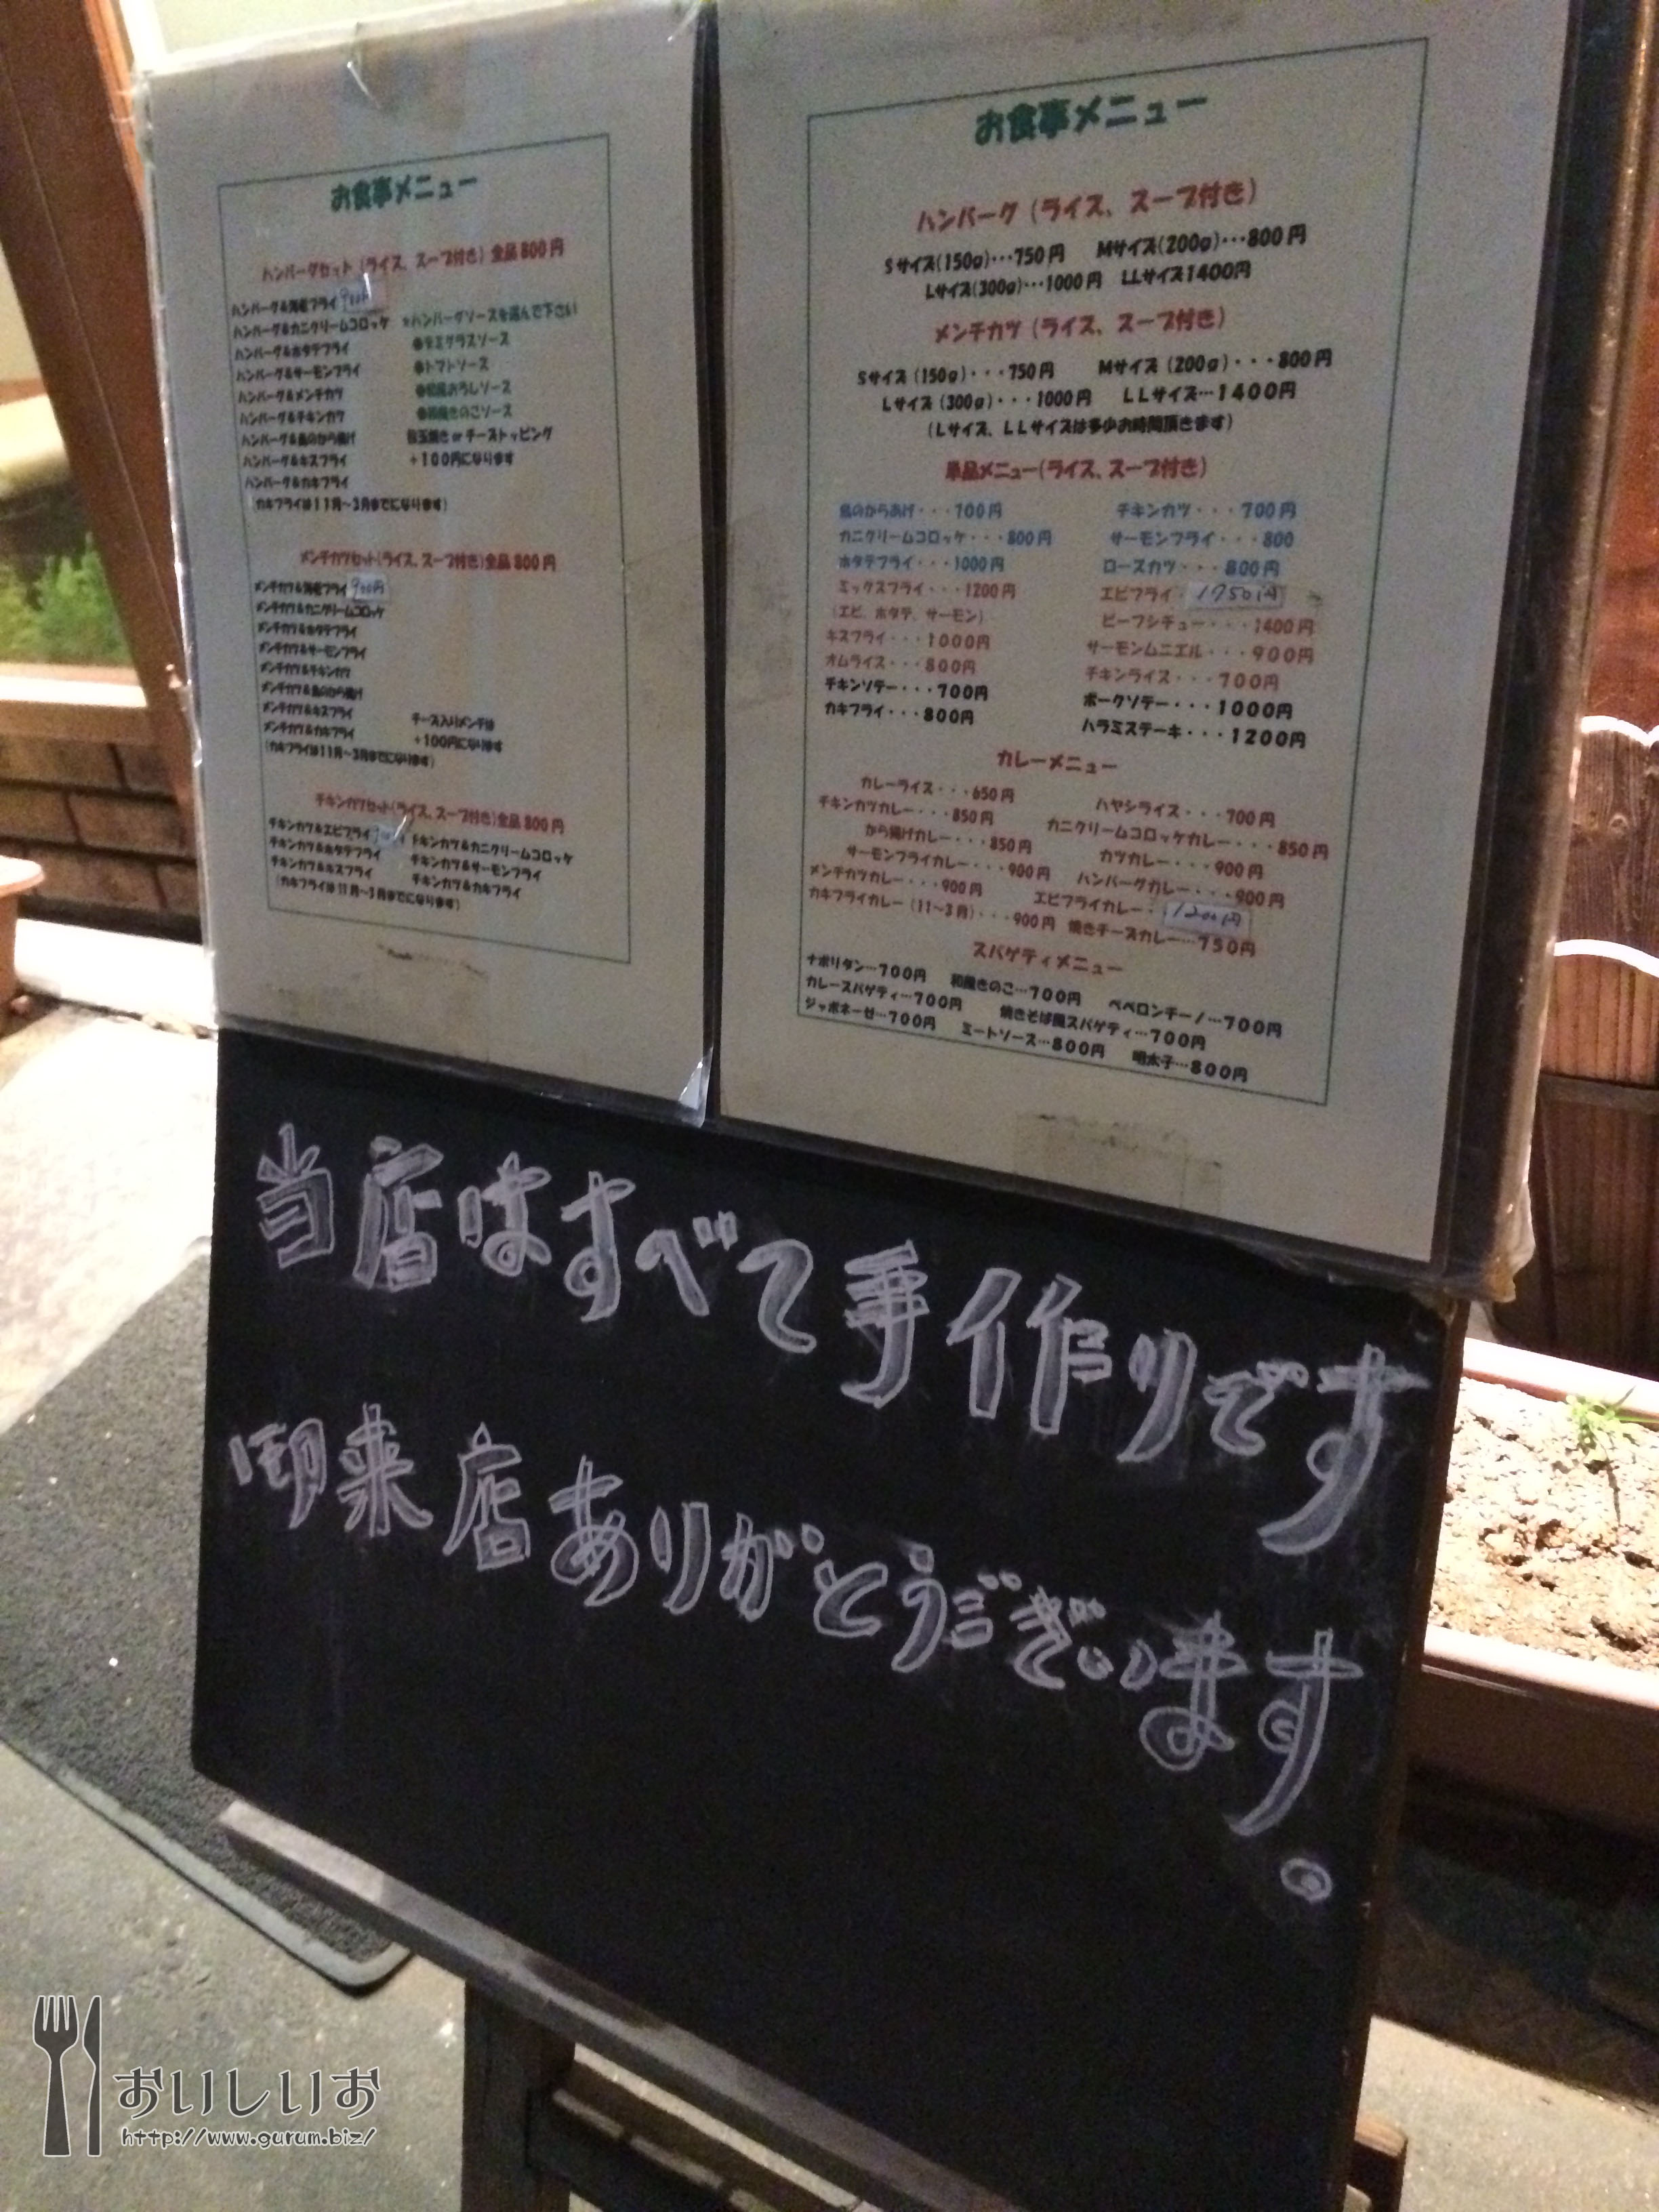 お食事メニュー
ハンバーグセット (ライス、スープ付き) 全品800円
ハンバーグ&海老フライ 900円
ハンバーグ&カニクリームコロッケ
ハンバーグ&ホタテフライ
ハンバーグ&サーモンフライ
ハンバーグ&メンチカツ
ハンバーグ&チキンカツ
ハンバーグ&鳥のから揚げ
ハンバーグ&キスフライ
ハンバーグ&カキフライ
(カキフライは11月~3月までになります)
*ハンバーグソースを選んで下さい
●デミグラスソース
●トマトソース
●和風おろしソース
●和風きのこソース
目玉焼き or チーズトッピング
+100円になります
メンチカツセット(ライス、スープ付き)全品800円
メンチカツ&海老フライ 900円
メンチカツ&カニクリームコロッケ
メンチカツ&ホタテフライ
メンチカツ&サーモンフライ
メンチカツ&チキンカツ
メンチカツ&鳥のから揚げ
メンチカツ&キスフライ
メンチカツ&カキフライ
(カキフライは11月~3月までになります)
チーズ入りメンチは
+100円になります
チキンカツセット(ライス、スープ付き)全品800円
チキンカツ&エビフライ チキンカツ&カニクリームコロッケ
チキンカツ&ホタテフライ チキンカツ&サーモンフライ
チキンカツ&キスフライ チキンカツ&カキフライ
(カキフライは11月~3月までになります)
お食事メニュー
ハンバーグ (ライス、スープ付き)
Sサイズ(150g)…750円 Mサイズ(200g)…800円
Lサイズ(300g)…1000円 LLサイズ1400円
メンチカツ (ライス、スープ付き)
Sサイズ (150g)・・・750円 Mサイズ (200g)・・・800円
Lサイズ (300g)・・・1000円 LLサイズ…1400円
(Lサイズ、LLサイズは多少お時間頂きます)
単品メニュー(ライス、スープ付き)
鳥のからあげ・・・700円 チキンカツ・・・700円
カニクリームコロッケ・・・800円 サーモンフライ・・・800
ホタテフライ・・・1000円 ロースカツ・・・800円
ミックスフライ・・・1200円 エビフライ・1250円
(エビ、ホタテ、サーモン) ビーフシチュー・・・1400円
キスフライ・・・1000円 サーモンムニエル・・・900円
オムライス・・・800円 チキンライス・・・700円
チキンソテー・・・700円 ポークソテー・・・1000円
カキフライ・・・800円 ハラミステーキ・・・1200円
カレーメニュー
カレーライス・・・650円 ハヤシライス・・・700円
チキンカツカレー・・・850円 カニクリームコロッケカレー・・・850円
から揚げカレー・・・850円 カツカレー・・・900円
サーモンフライカレー・・・900円 ハンバーグカレー・・・900円
メンチカツカレー・・・900円 エビフライカレー・1200円
カキフライカレー (11~3月)・・・900円 焼きチーズカレー…750円
スパゲティメニュー
ナポリタン…700円 和風きのこ…700円 ペペロンチーノ…700円
カレースパゲティ…700円 焼きそば風スパゲティ…700円
ジャポネーゼ…700円 ミートソース…800円 明太子…800円
当店はすべて手作りです
御来店ありがとうございます。
おいしいお
http://www.gurum.biz/